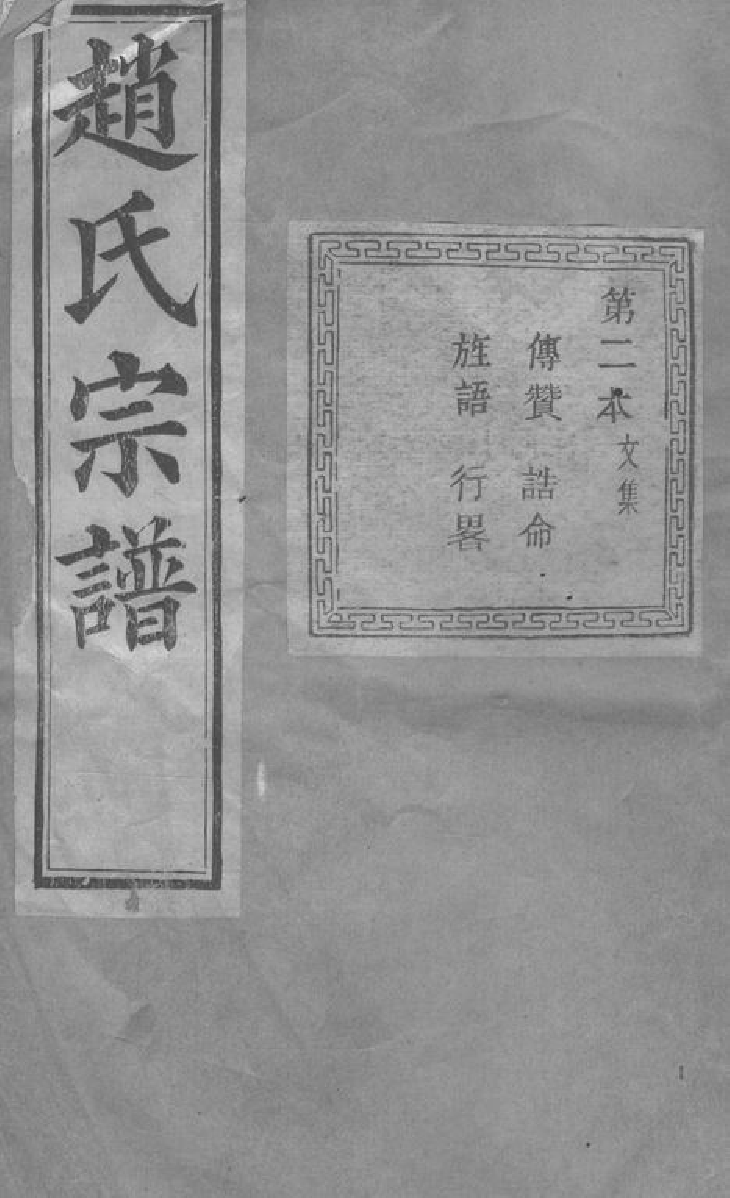 趙氏宗譜
第二本文集
傳贊 誥命
旌語 行畧